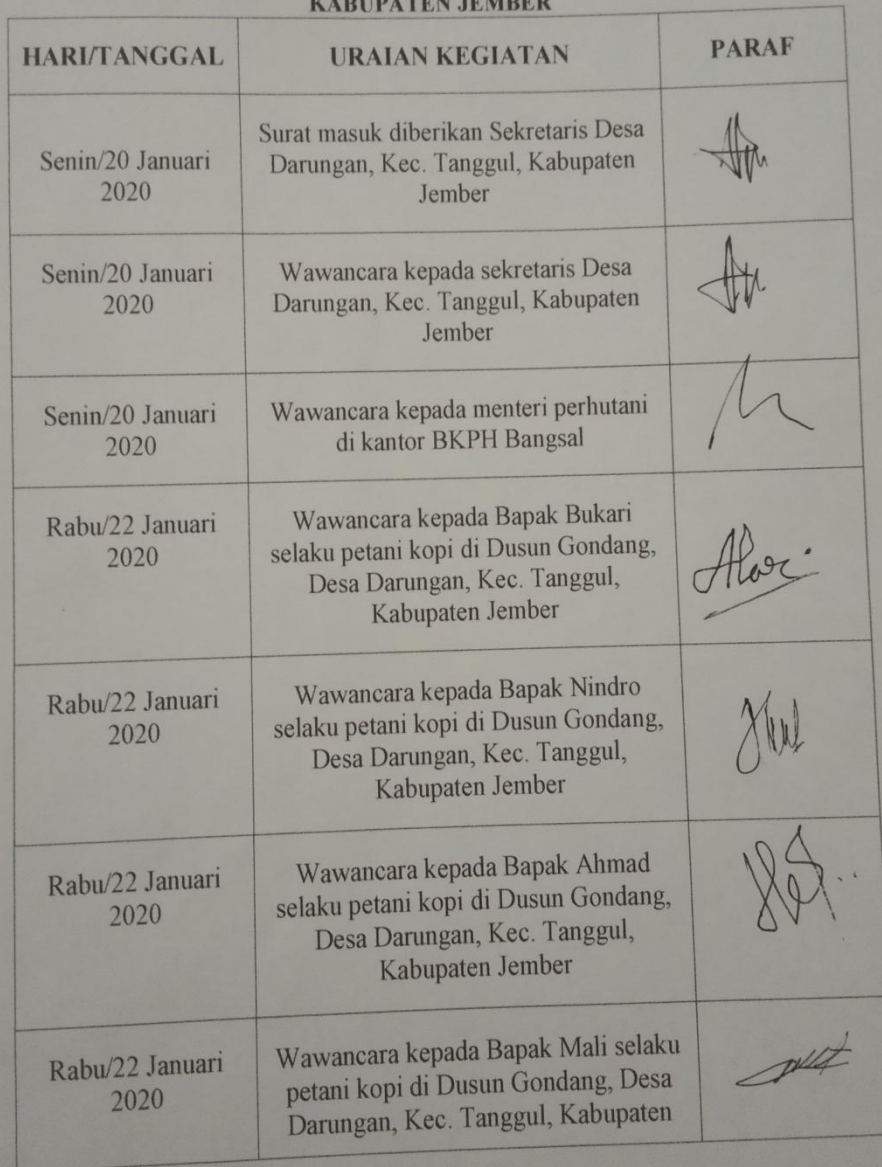 KABUPATEN JEMBER
HARI/TANGGAL
URAIAN KEGIATAN
PARAF
Senin/20 Januari
2020
Surat masuk diberikan Sekretaris Desa
Darungan, Kec. Tanggul, Kabupaten
Jember
Senin/20 Januari
2020
Wawancara kepada sekretaris Desa
Darungan, Kec. Tanggul, Kabupaten
Jember
Senin/20 Januari
2020
Wawancara kepada menteri perhutani
di kantor BKPH Bangsal
Rabu/22 Januari
2020
Wawancara kepada Bapak Bukari
selaku petani kopi di Dusun Gondang,
Desa Darungan, Kec. Tanggul,
Kabupaten Jember
Rabu/22 Januari
2020
Wawancara kepada Bapak Nindro
selaku petani kopi di Dusun Gondang,
Desa Darungan, Kec. Tanggul,
Kabupaten Jember
Rabu/22 Januari
2020
Wawancara kepada Bapak Ahmad
selaku petani kopi di Dusun Gondang,
Desa Darungan, Kec. Tanggul,
Kabupaten Jember
Rabu/22 Januari
2020
Wawancara kepada Bapak Mali selaku
petani kopi di Dusun Gondang, Desa
Darungan, Kec. Tanggul, Kabupaten